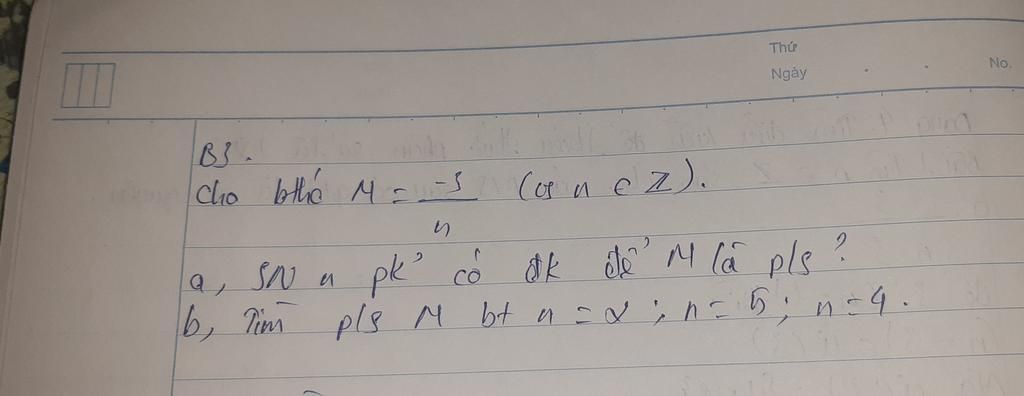 Thứ
Ngày . .
No.
B3.
Cho bthé M = -3/n (cs n ∈ Z).
a, SN n pk' có đk để M là p/s?
b, Tìm p/s M bt n = 2; n = 5; n = 4.